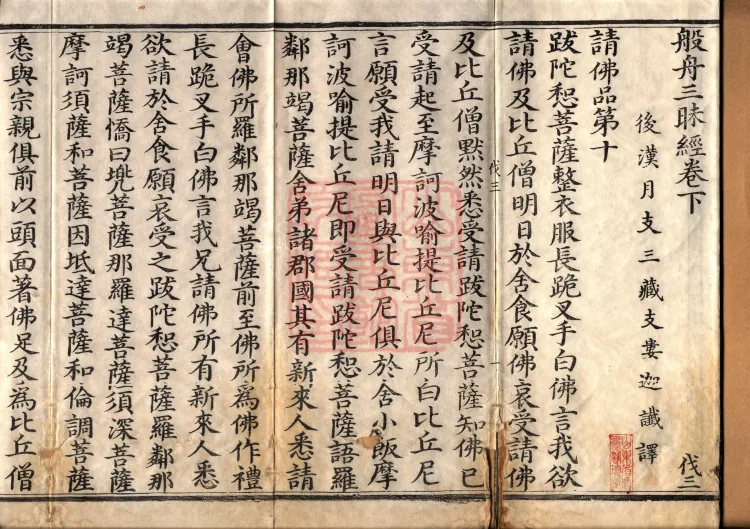 般舟三昧經卷下
伐三
後漢月支三藏支婁迦讖譯
請佛品第十
跋陀惒菩薩整衣服長跪叉手白佛言我欲
請佛及比丘僧明日於舍食願佛哀受請佛
及比丘僧默然悉受請跋陀惒菩薩知佛已
伐三
受請起至摩訶波喻提比丘尼所白比丘尼
言願受我請明日與比丘尼俱於舍小飯摩
訶波喻提比丘尼即受請跋陀惒菩薩語羅
鄰那竭菩薩舍弟諸郡國其有新來人悉請
會佛所羅鄰那竭菩薩前至佛所為佛作禮
長跪叉手白佛言我兄請佛所有新來人悉
欲請於舍食願哀受之跋陀惒菩薩羅鄰那
竭菩薩憍曰兜菩薩那羅達菩薩須深菩薩
摩訶須薩和菩薩因坻達菩薩和倫調菩薩
悉與宗親俱前以頭面著佛足及為比丘僧